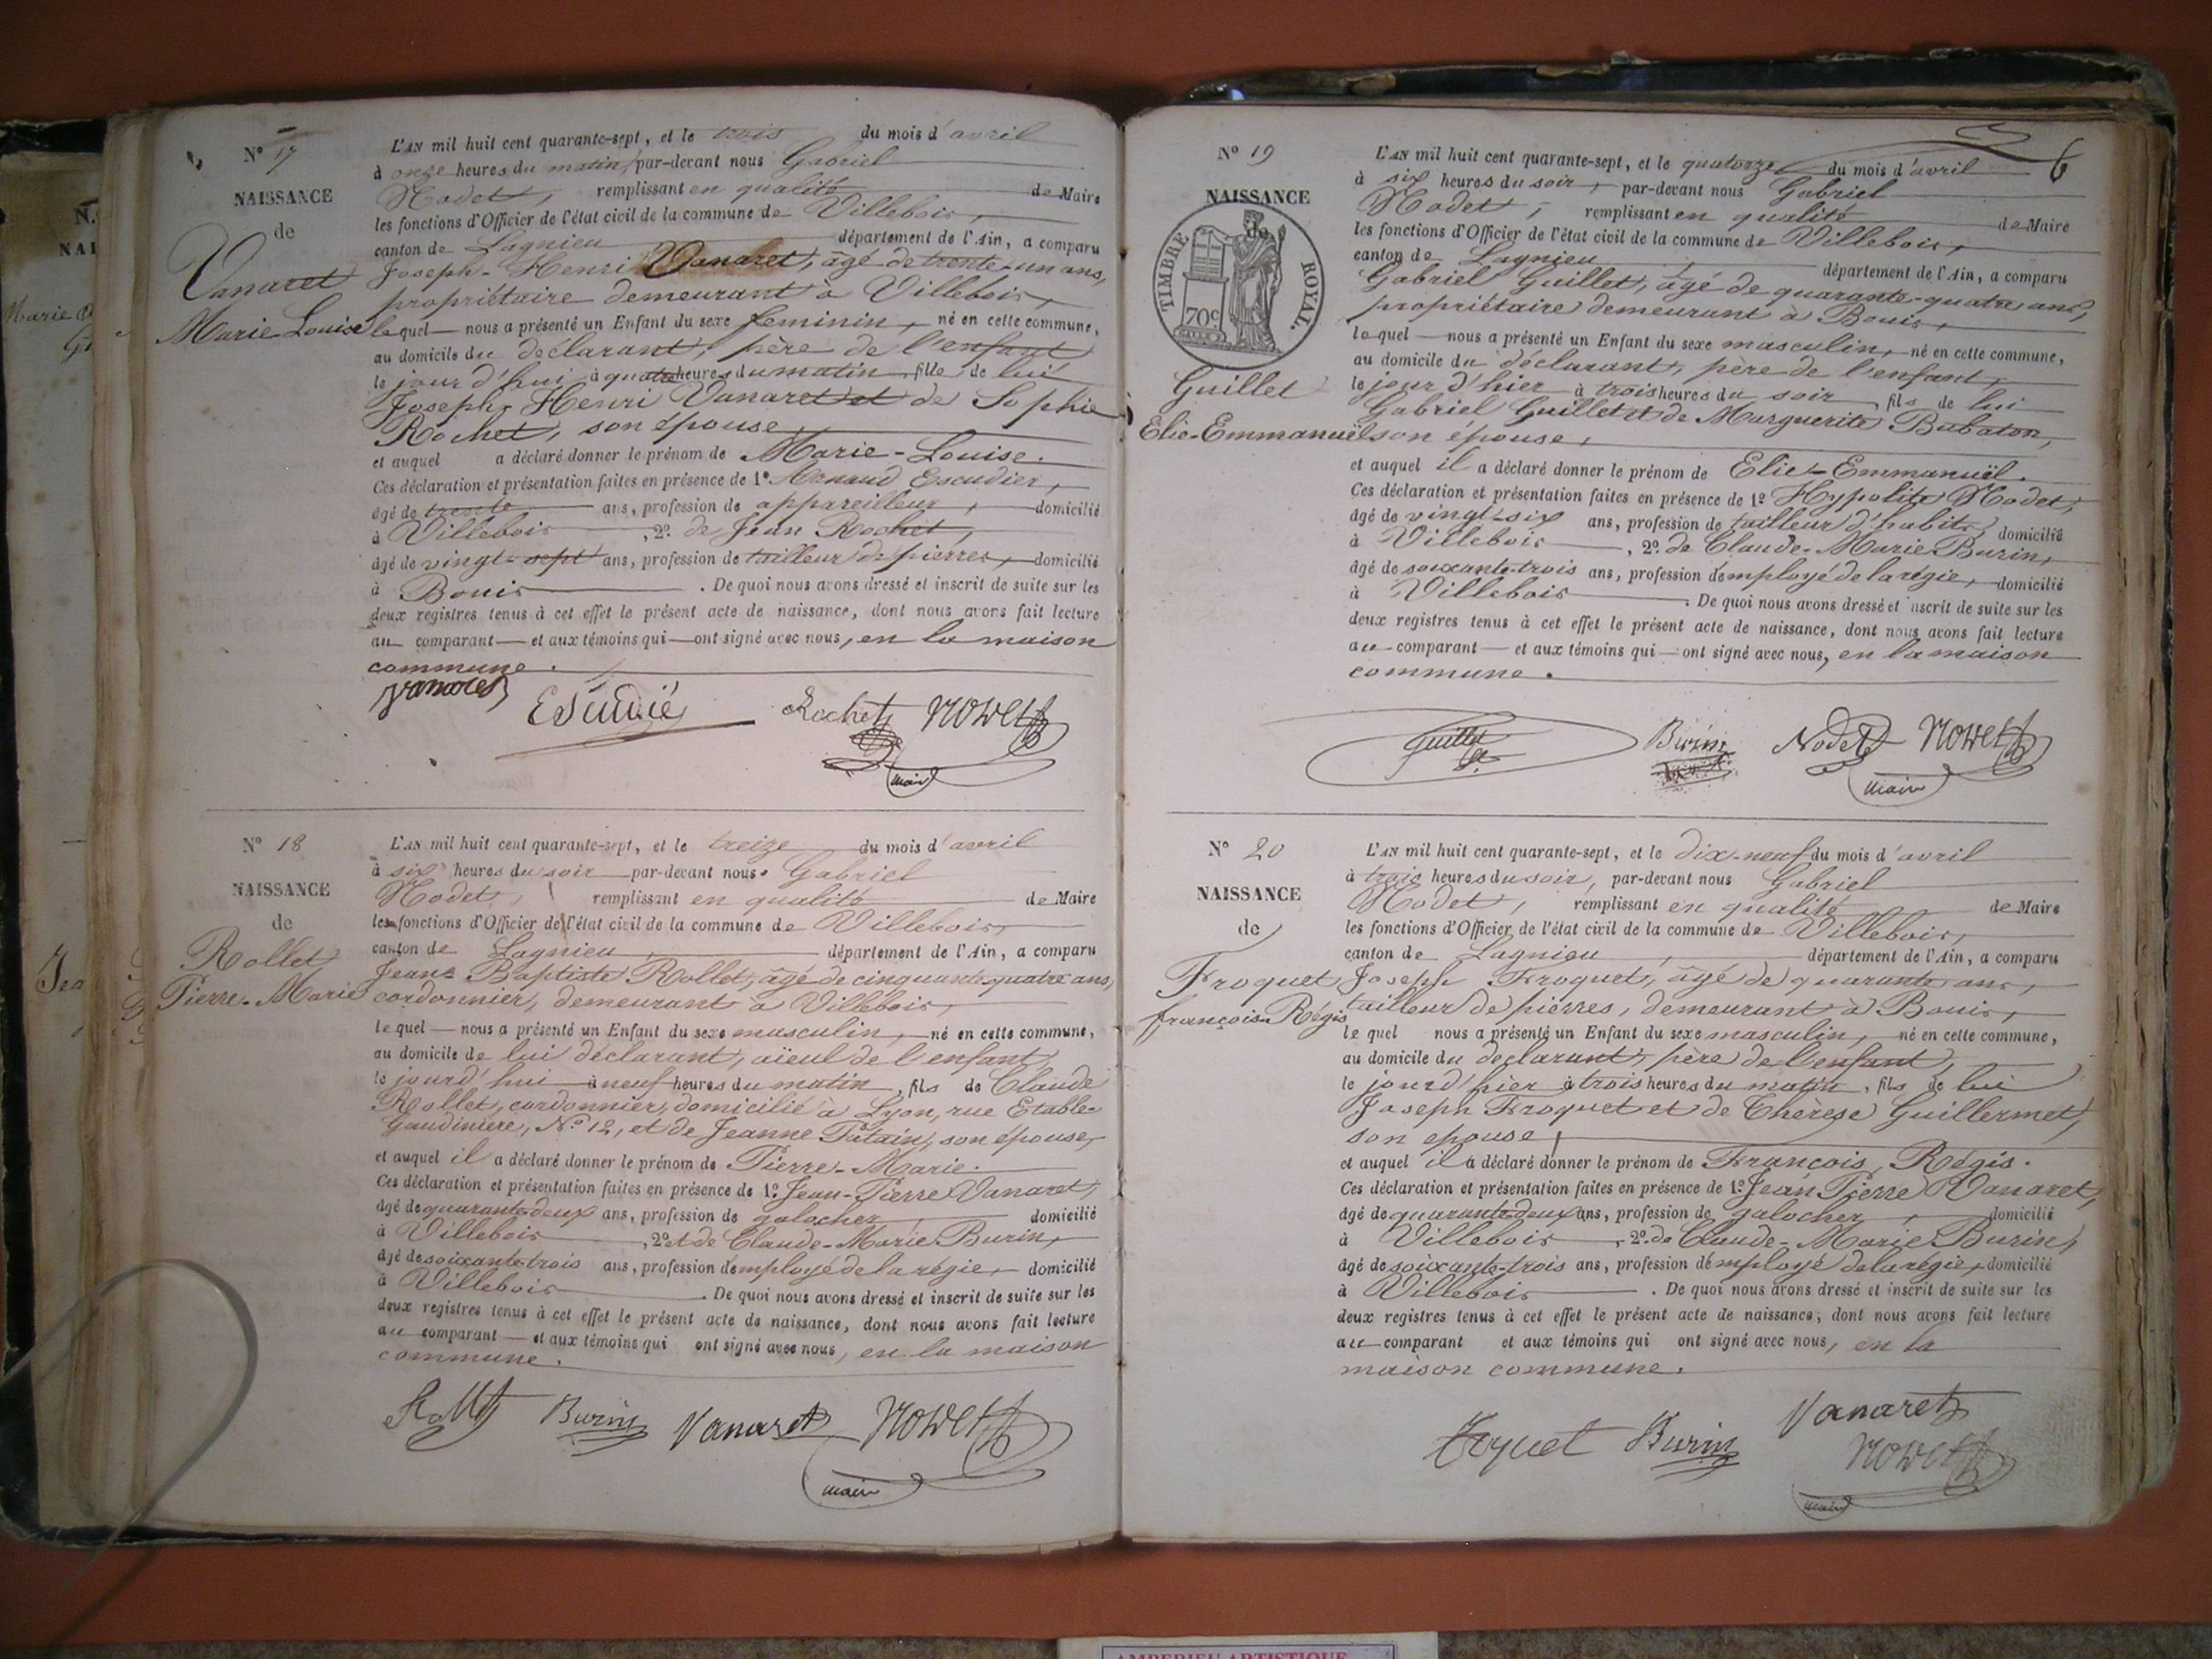 N° 17
NAISSANCE
de
Vanaret
Marie Louise
L'AN mil huit cent quarante-sept, et le trois du mois d'avril
à onze heures du matin, par-devant nous Gabriel
Nodet, remplissant en qualité de Maire
les fonctions d'Officier de l'état civil de la commune de Villebois,
canton de Lagnieu département de l'Ain, a comparu
Joseph-Henri Vanaret, âgé de trente-un ans,
propriétaire demeurant à Villebois,
lequel nous a présenté un Enfant du sexe feminin, né en cette commune,
au domicile du déclarant, père de l'enfant
le jour d'hui à quatre heures du matin fille de lui
Joseph-Henri Vanaret et de Sophie
Rochet, son épouse,
et auquel a déclaré donner le prénom de Marie-Louise.
Ces déclaration et présentation faites en présence de 1° Arnaud Escudier,
âgé de trente ans, profession de appareilleur, domicilié
à Villebois, 2° de Jean Rochet,
âgé de vingt-sept ans, profession de tailleur de pierres, domicilié
à Bouis. De quoi nous avons dressé et inscrit de suite sur les
deux registres tenus à cet effet le présent acte de naissance, dont nous avons fait lecture
au comparant et aux témoins qui ont signé avec nous, en la maison
commune.
Vanaret Escudié Rochet Nodet
maire
N° 18
NAISSANCE
de
Rollet
Pierre-Marie
L'AN mil huit cent quarante-sept, et le treize du mois d'avril
à six heures du soir par-devant nous Gabriel
Nodet, remplissant en qualité de Maire
les fonctions d'Officier de l'état civil de la commune de Villebois,
canton de Lagnieu département de l'Ain, a comparu
Jean-Baptiste Rollet, âgé de cinquante-quatre ans,
cordonnier, demeurant à Villebois,
lequel nous a présenté un Enfant du sexe masculin, né en cette commune,
au domicile de lui déclarant, aïeul de l'enfant,
le jourd'hui à neuf heures du matin, fils de Claude
Rollet, cordonnier, domicilié à Lyon, rue Etable-
Gaudinière, N° 12, et de Jeanne Patain, son épouse,
et auquel il a déclaré donner le prénom de Pierre-Marie.
Ces déclaration et présentation faites en présence de 1° Jean-Pierre Vanaret,
âgé de quarante-deux ans, profession de galocher domicilié
à Villebois, 2° et de Claude-Marie Burin,
âgé de soixante-trois ans, profession d'employé de la régie, domicilié
à Villebois. De quoi nous avons dressé et inscrit de suite sur les
deux registres tenus à cet effet le présent acte de naissance, dont nous avons fait lecture
au comparant et aux témoins qui ont signé avec nous, en la maison
commune.
Rollet Burin Vanaret Nodet
maire
6
N° 19
NAISSANCE
de
TIMBRE ROYAL.
70c
Guillet
Elie-Emmanuël
L'AN mil huit cent quarante-sept, et le quatorze du mois d'avril
à six heures du soir, par-devant nous Gabriel
Nodet, remplissant en qualité de Maire
les fonctions d'Officier de l'état civil de la commune de Villebois,
canton de Lagnieu, département de l'Ain, a comparu
Gabriel Guillet, âgé de quarante-quatre ans,
propriétaire demeurant à Bouis,
lequel nous a présenté un Enfant du sexe masculin, né en cette commune,
au domicile du déclarant, père de l'enfant,
le jour d'hier à trois heures du soir, fils de lui
Gabriel Guillet et de Marguerite Babaton,
son épouse,
et auquel il a déclaré donner le prénom de Elie-Emmanuël.
Ces déclaration et présentation faites en présence de 1° Hypolite Nodet,
âgé de vingt-six ans, profession de tailleur d'habits, domicilié
à Villebois, 2° de Claude-Marie Burin,
âgé de soixante-trois ans, profession d'employé de la régie, domicilié
à Villebois. De quoi nous avons dressé et inscrit de suite sur les
deux registres tenus à cet effet le présent acte de naissance, dont nous avons fait lecture
au comparant et aux témoins qui ont signé avec nous, en la maison
commune.
Guillet Burin Nodet Nodet
maire
N° 20
NAISSANCE
de
Froquet
François Régis
L'AN mil huit cent quarante-sept, et le dix-neuf du mois d'avril
à trois heures du soir, par-devant nous Gabriel
Nodet, remplissant en qualité de Maire
les fonctions d'Officier de l'état civil de la commune de Villebois,
canton de Lagnieu, département de l'Ain, a comparu
Joseph Froquet, âgé de quarante ans,
tailleur de pierres, demeurant à Bouis,
lequel nous a présenté un Enfant du sexe masculin, né en cette commune,
au domicile du déclarant, père de l'enfant,
le jourd'hier à trois heures du matin, fils de lui
Joseph Froquet et de Thérèse Guillermet,
son epouse,
et auquel il a déclaré donner le prénom de François, Régis.
Ces déclaration et présentation faites en présence de 1° Jean Pierre Vanaret,
âgé de quarante-deux ans, profession de galocher, domicilié
à Villebois, 2° de Claude-Marie Burin,
âgé de soixante-trois ans, profession d'employé de la régie, domicilié
à Villebois. De quoi nous avons dressé et inscrit de suite sur les
deux registres tenus à cet effet le présent acte de naissance, dont nous avons fait lecture
au comparant et aux témoins qui ont signé avec nous, en la
maison commune.
Froquet Burin Vanaret
Nodet
maire
AMBERIEU ARTISTIQUE